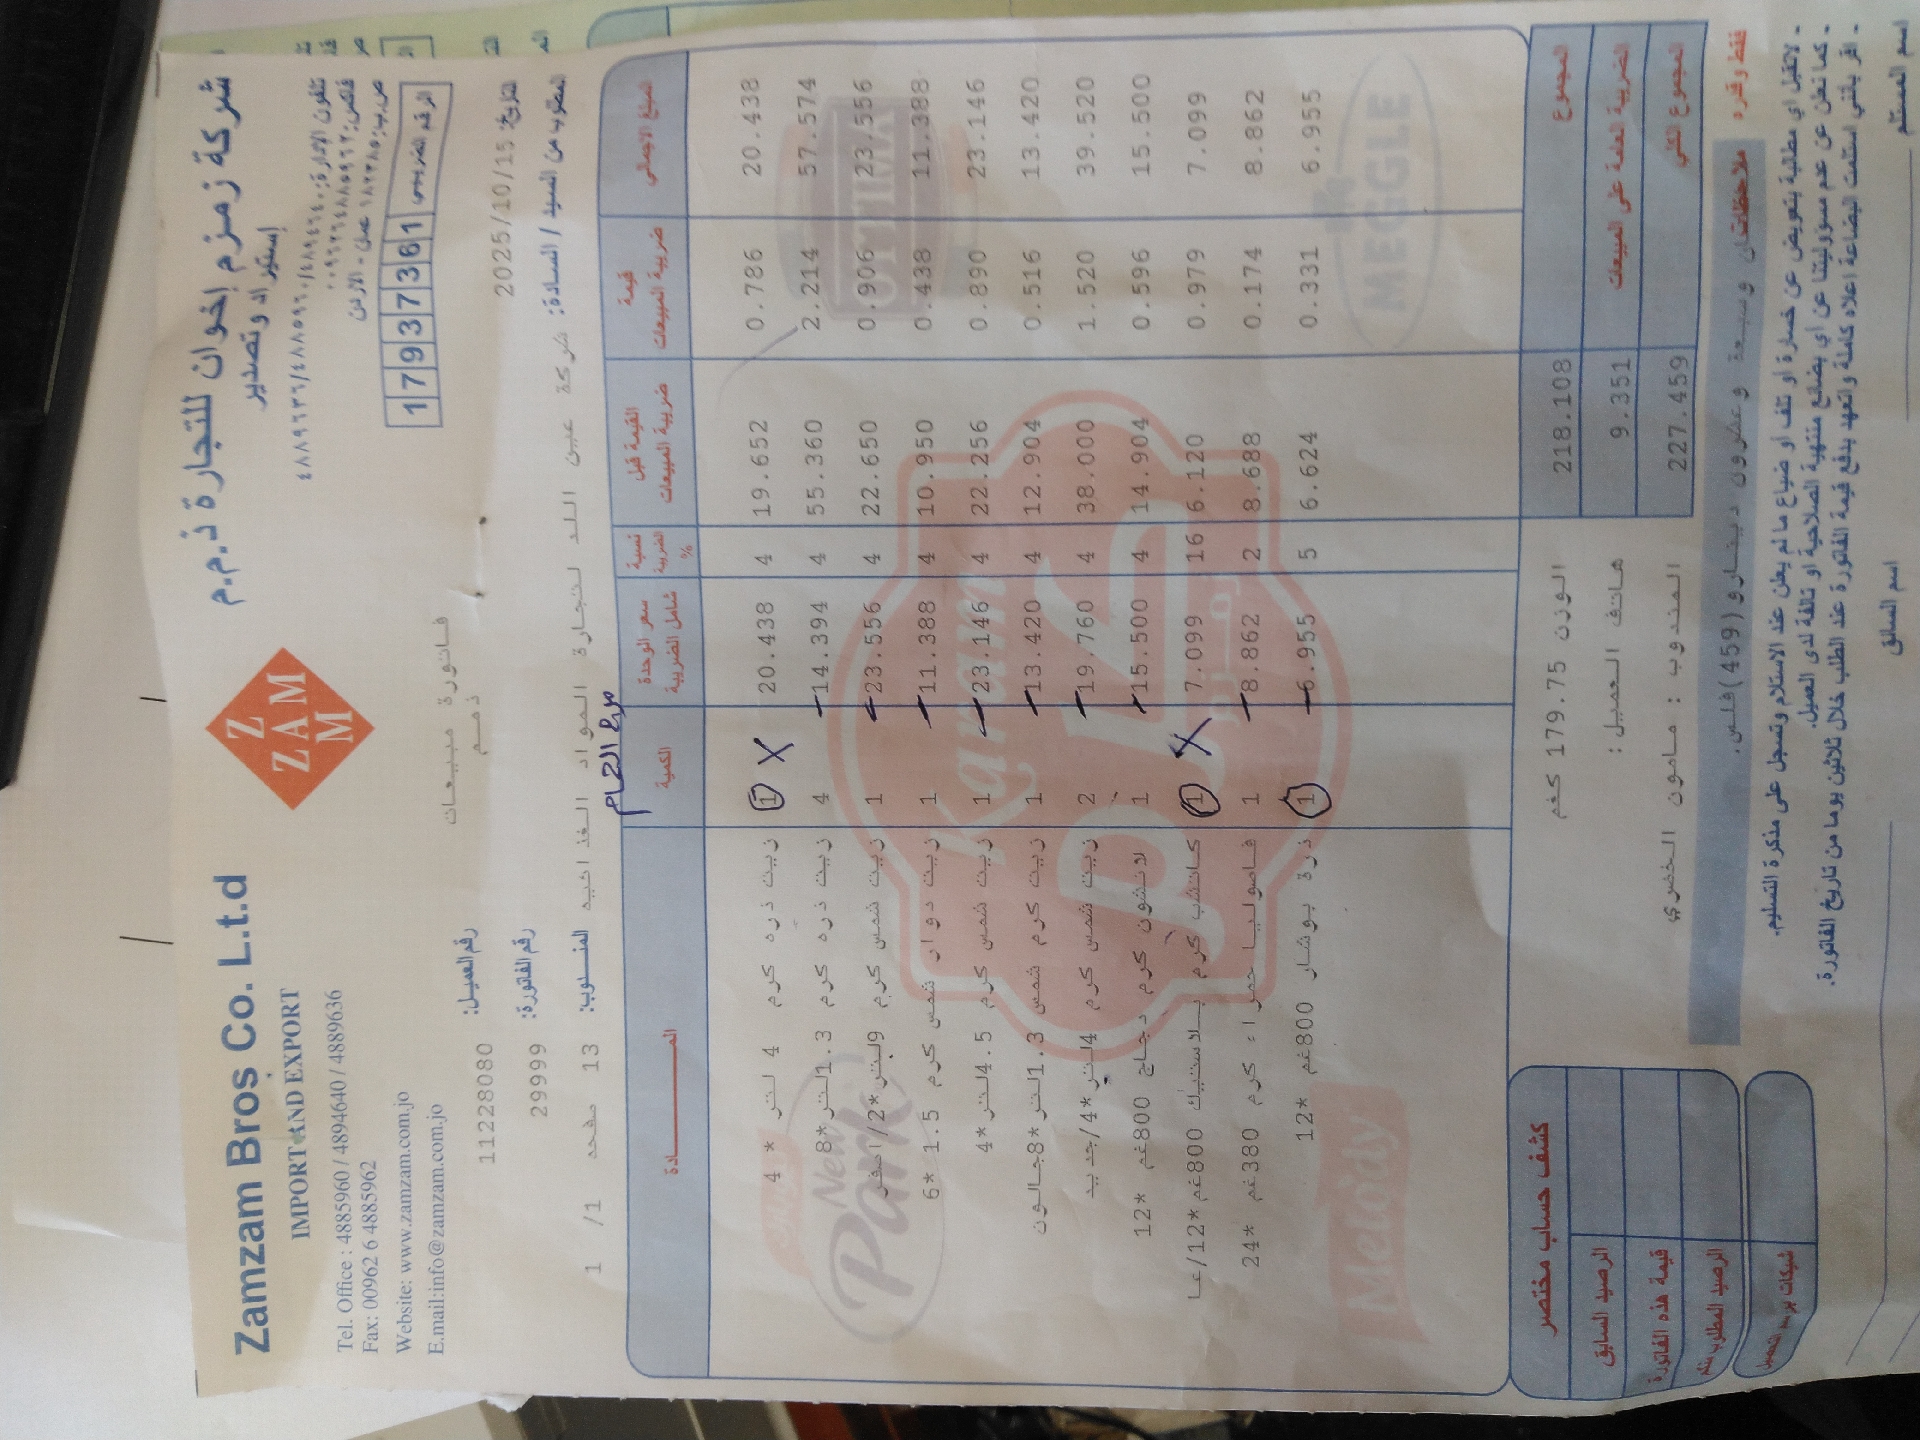 Zamzam Bros Co. L.t.d
IMPORT AND EXPORT
Tel. Office : 4885960 / 4894640 / 4889636
Fax: 00962 6 4885962
Website: www.zamzam.com.jo
E.mail:info@zamzam.com.jo
Z
ZAM
M
شركة زمزم إخوان للتجارة ذ.م.م
إستيراد وتصدير
تلفون الإدارة: ٤٨٨٩٦٣٦/٤٨٨٥٩٦٠/٤٨٩٤٦٤٠
فاكس: ٠٠٩٦٢٦٤٨٨٥٩٦٢
الرقم الضريبي 17937361
فاتورة مبيعات
ذمم
رقم العميل: 11228080
رقم الفاتورة: 29999
التاريخ: 2025/10/15
المندوب: 13 صفحه 1/ 1
المطلوب من السيد / السادة: شركة عبين اللد لتجارة المواد الغذائيه
المادة الكمية سعر الوحدة شامل الضريبة نسبة الضريبة % القيمة قبل ضريبة المبيعات قيمة ضريبة المبيعات المبلغ الاجمالي
زيت ذره كرم 4 لتر * 4 1 X 20.438 4 19.652 0.786 20.438
زيت ذره كرم 1.3لتر*8 4 14.394 4 55.360 2.214 57.574
زيت شمس كرم 9لتر*2/اصفر 1 23.556 4 22.650 0.906 23.556
زيت دوار شمس كرم 1.5 *6 1 11.388 4 10.950 0.438 11.388
زيت شمس كرم 4.5لتر*4 1 23.146 4 22.256 0.890 23.146
زيت كرم شمس 1.3لتر*8جالون 1 13.420 4 12.904 0.516 13.420
زيت شمس كرم 4لتر*4/جديد 2 19.760 4 38.000 1.520 39.520
لانشون كرم دجاج 800غم *12 1 15.500 4 14.904 0.596 15.500
كاتشب كرم بلاستيك 800غم*12/عا 1 X 7.099 16 6.120 0.979 7.099
فاصوليا حمراء كرم 380غم *24 1 8.862 2 8.688 0.174 8.862
ذرة بوشار 800غم *12 1 6.955 5 6.624 0.331 6.955
Karam
New Park
Melody
OTTIMA
MEGGLE
الوزن 179.75 كغم
هاتف العميل :
المندوب : مامون الخضري
المجموع 218.108
الضريبة العامة على المبيعات 9.351
المجموع الكلي 227.459
فقط وقدره
وسبعة وعشرون دينار و(459)فلس.
ملاحظات
- لانقبل اي مطالبة بتعويض عن خسارة او تلف أو ضياع ما لم يعلن عند الاستلام وتسجل على مذكرة التسليم.
- كما نعلن عن عدم مسؤوليتنا عن اي بضائع منتهية الصلاحية او تالفة لدى العميل.
- اقر بانني استلمت البضاعة اعلاه كاملة واتعهد بدفع قيمة الفاتورة عند الطلب خلال ثلاثين يوما من تاريخ الفاتورة.
كشف حساب مختصر
الرصيد السابق
قيمة هذه الفاتورة
الرصيد المطلوب منكم
شيكات برسم التحصيل
اسم السائق
اسم المستلم